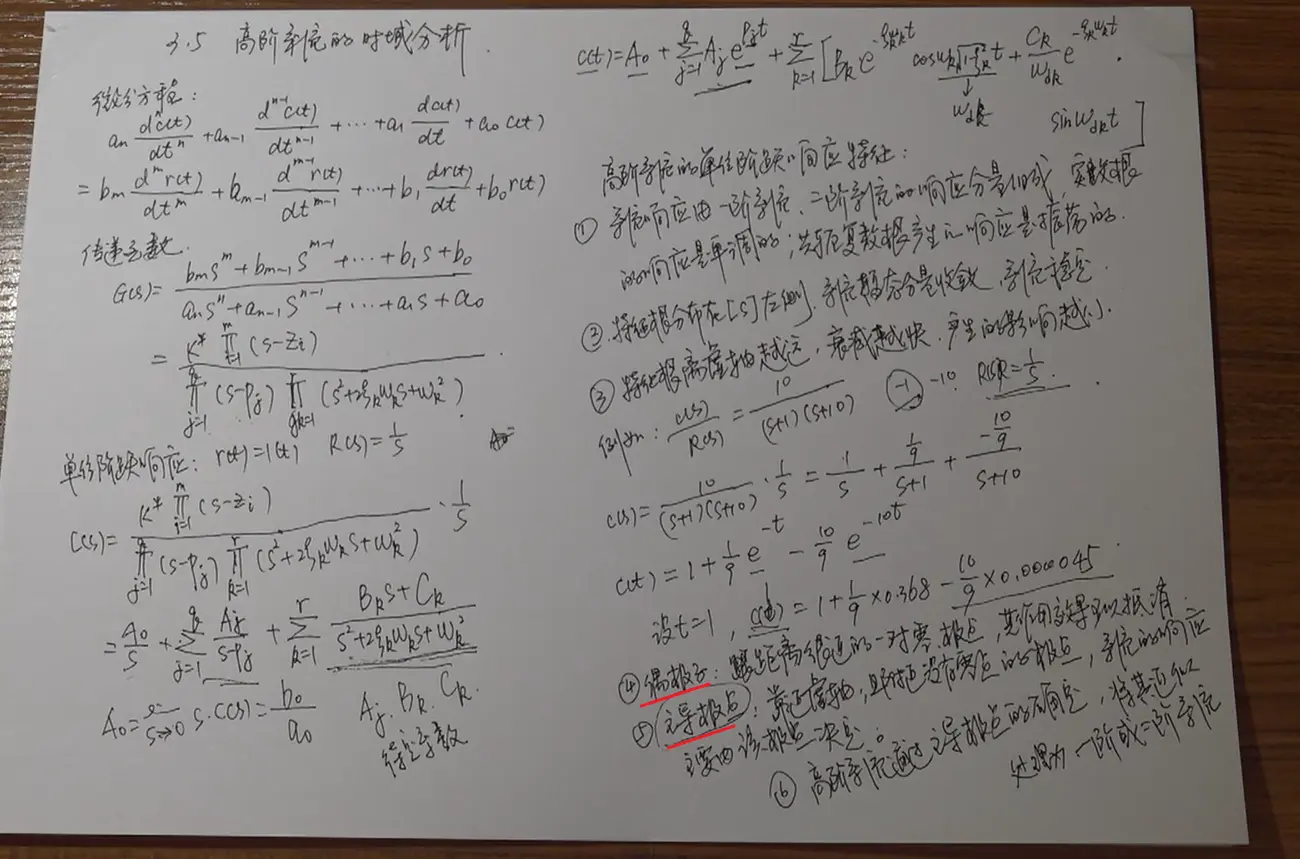 3.5 高阶系统的时域分析.
微分方程:
an dⁿc(t)/dtⁿ + an-1 dⁿ⁻¹c(t)/dtⁿ⁻¹ + ⋯ + a1 dc(t)/dt + a0 c(t)
= bm dᵐr(t)/dtᵐ + bm-1 dᵐ⁻¹r(t)/dtᵐ⁻¹ + ⋯ + b1 dr(t)/dt + b0 r(t)
传递函数.
G(s) = (bm sᵐ + bm-1 sᵐ⁻¹ + ⋯ + b1 s + b0) / (an sⁿ + an-1 sⁿ⁻¹ + ⋯ + a1 s + a0)
= K* ∏ᵢ₌₁ᵐ (s-zi) / ∏ⱼ₌₁ (s-pj) ∏ₖ₌₁ (s²+2ξkωks+ωk²)
单位阶跃响应: r(t)=1(t) R(s)=1/s
C(s) = K* ∏ᵢ₌₁ᵐ (s-zi) / ∏ⱼ₌₁ (s-pj) ∏ₖ₌₁ʳ (s²+2ξkωks+ωk²) · 1/s
= A0/s + ∑ⱼ₌₁ Aj/(s-pj) + ∑ₖ₌₁ʳ (Bks+Ck)/(s²+2ξkωks+ωk²)
A0 = s→0 s·C(s) = b0/a0 Aj. Bk. Ck.
待定系数
c(t) = A0 + ∑ⱼ₌₁ Aj e^(pjt) + ∑ₖ₌₁ʳ [Bk e^(-ξkωkt) cosωk√(1-ξk²)t + Ck/ωdk e^(-ξkωkt) .
↓
ωdk sinωdkt ]
高阶系统的单位阶跃响应特征:
① 系统响应由一阶系统、二阶系统的响应分量组成, 实数根
的响应是单调的; 共轭复数根产生的响应是振荡的.
② 特征根分布在[s]左侧. 系统暂态分量收敛, 系统稳定.
③ 特征根离虚轴越远, 衰减越快. 产生的影响越小.
例如: C(s)/R(s) = 10/((s+1)(s+10)) -1 -10 R(s)=1/s .
C(s) = 10/((s+1)(s+10)) · 1/s = 1/s + (1/9)/(s+1) + (-10/9)/(s+10)
c(t) = 1 + 1/9 e^(-t) - 10/9 e^(-10t)
设t=1, c(t) = 1 + 1/9 ×0.368 - 10/9 ×0.000045
④ 偶极子: 距离很近的一对零.极点, 其作用效果可以抵消.
⑤ 主导极点: 靠近虚轴, 且附近没有零点的极点, 系统的响应
主要由该极点决定。
⑥ 高阶系统通过主导极点的确定, 将其近似
处理为一阶或二阶系统